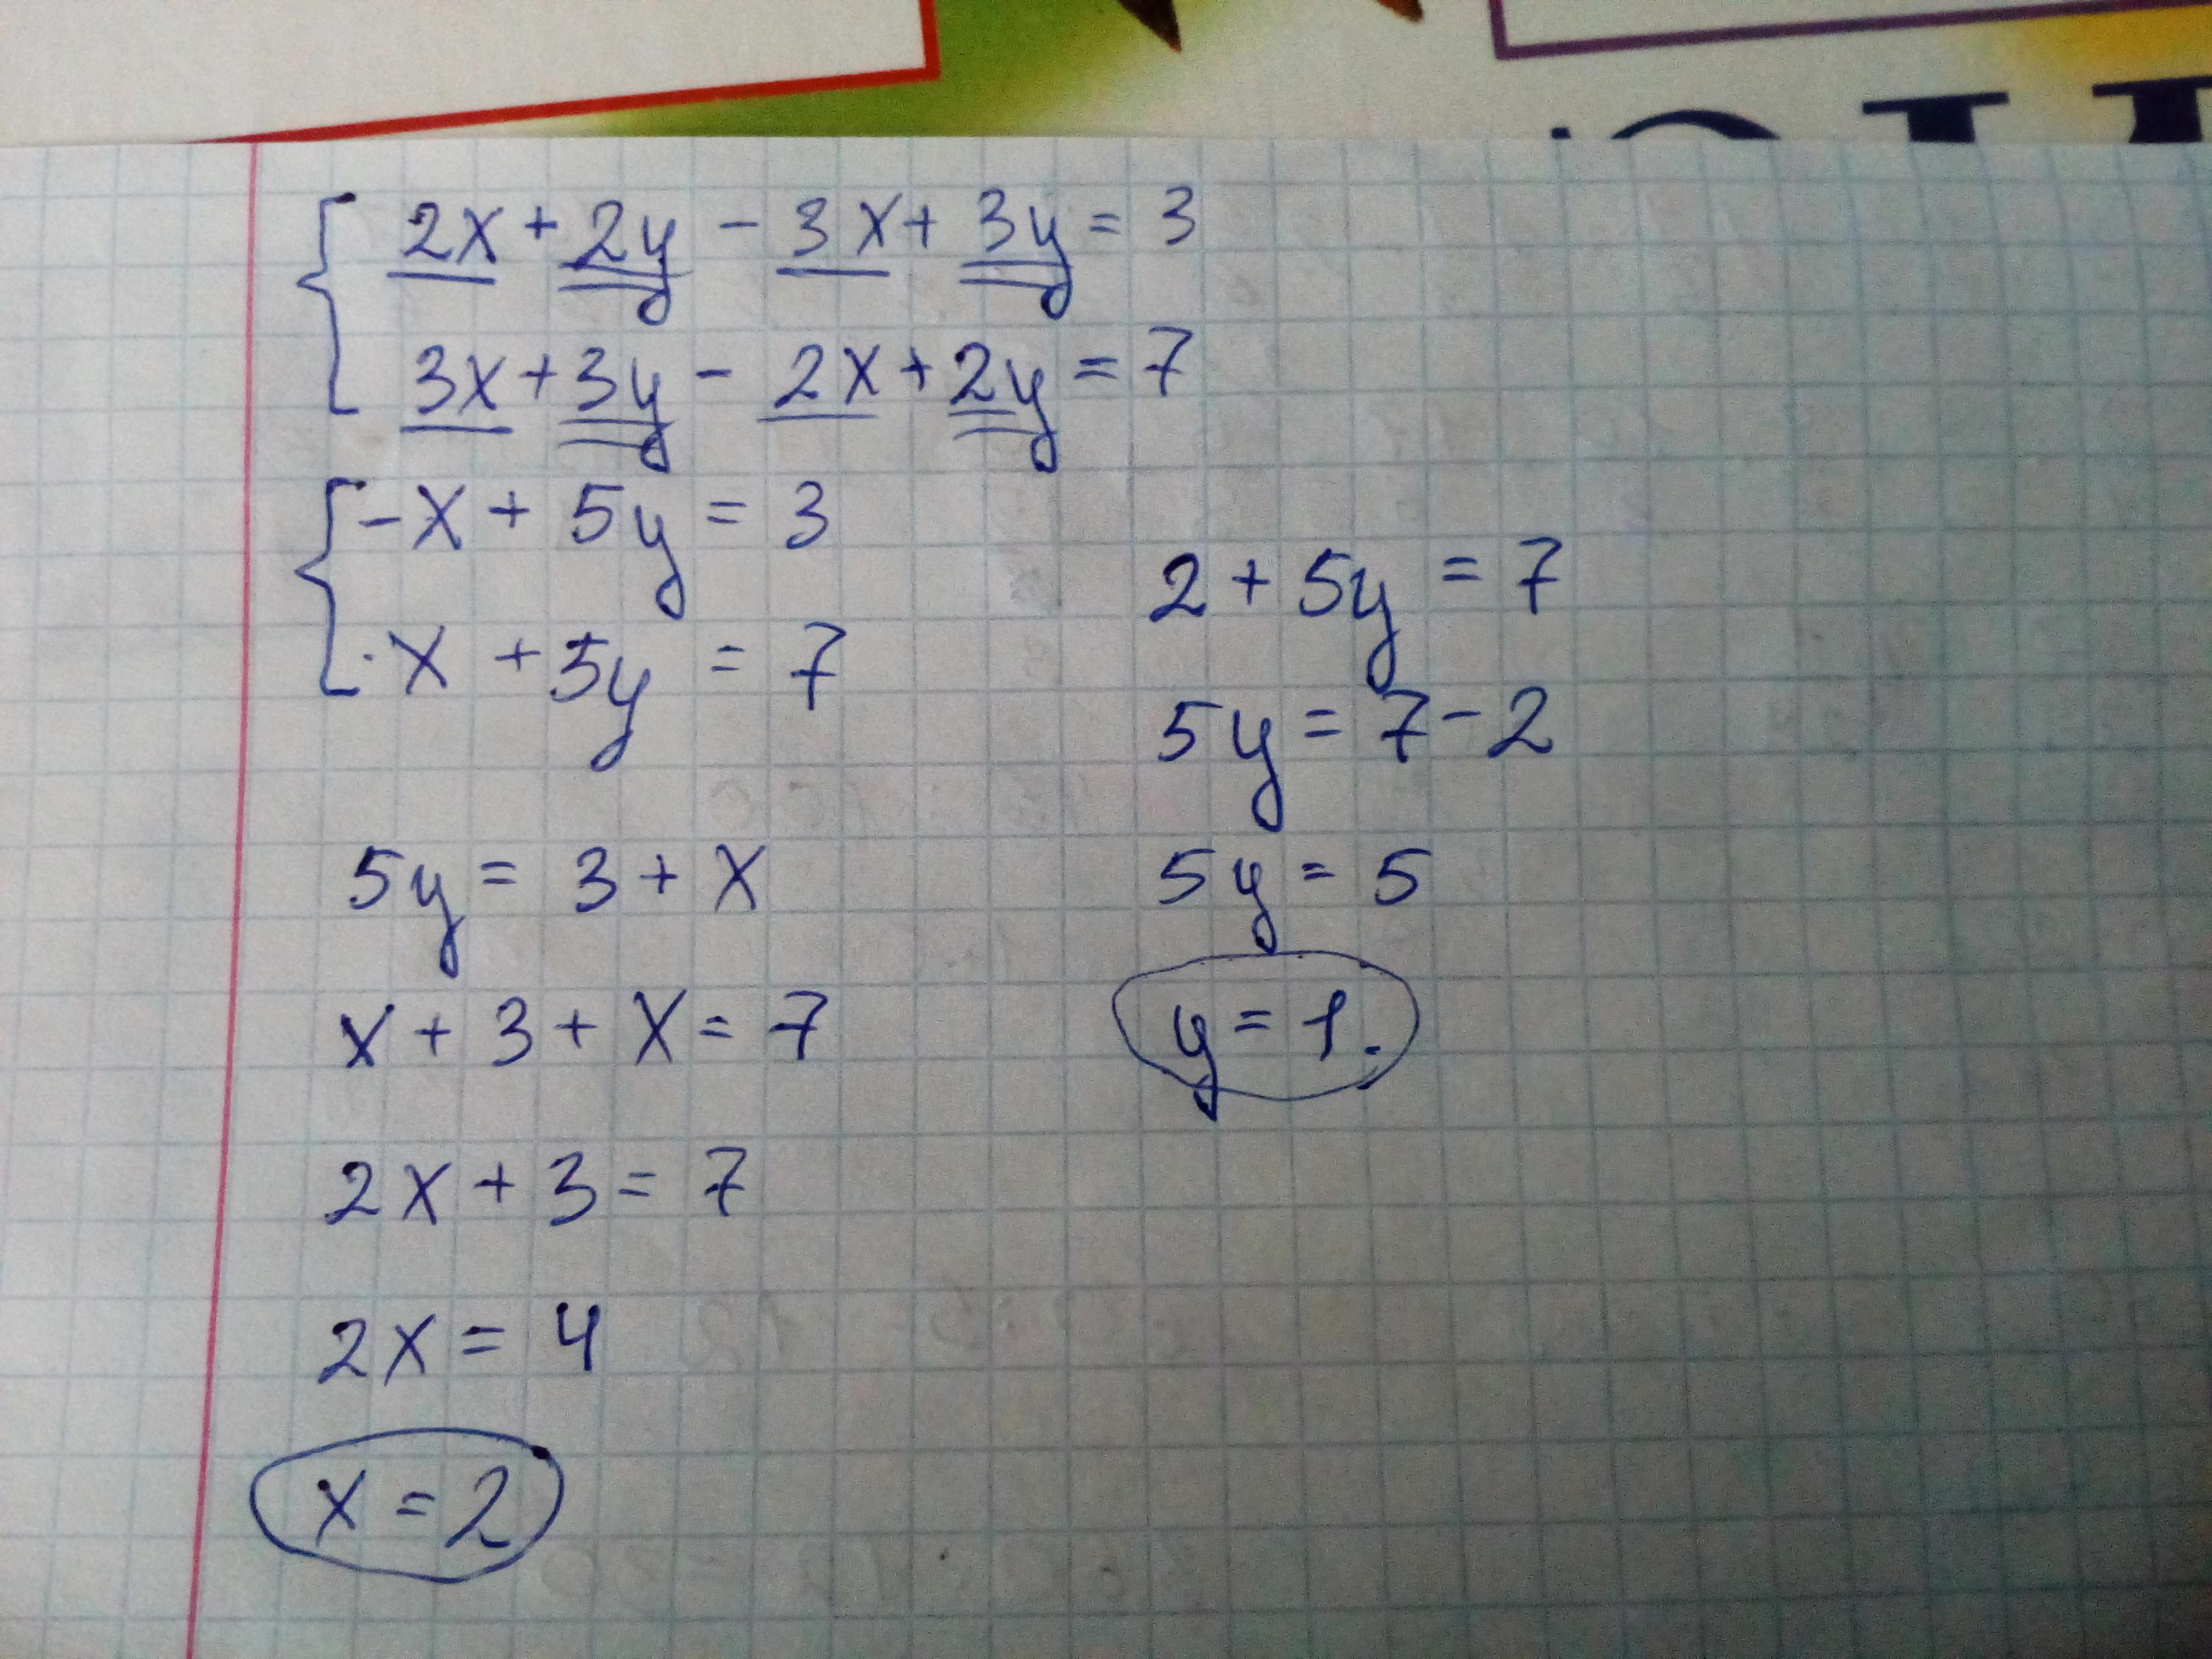 2x + 2y - 3x + 3y = 3
3x + 3y - 2x + 2y = 7
-x + 5y = 3
x + 5y = 7
5y = 3 + x
x + 3 + x = 7
2x + 3 = 7
2x = 4
x = 2
2 + 5y = 7
5y = 7 - 2
5y = 5
y = 1.